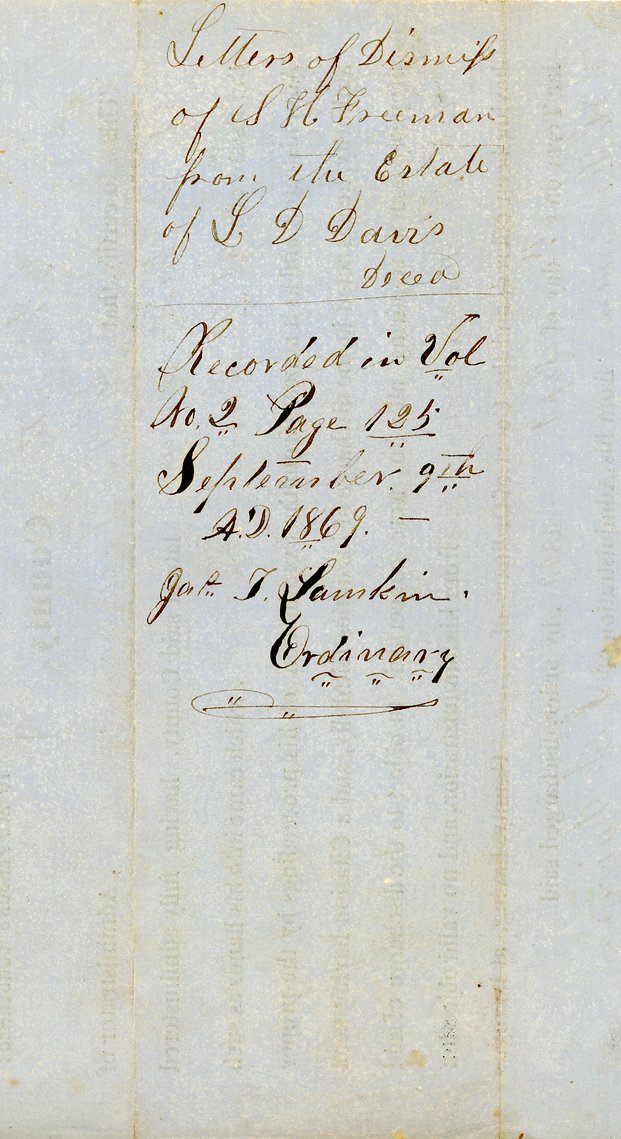 Letters of Dismiss
of S H Freeman
from the Estate
of L D Davis
Deced
Recorded in Vol
No. 2 Page 125
September 9th
A.D. 1869. —
Jas. T. Lamkin.
Ordinary